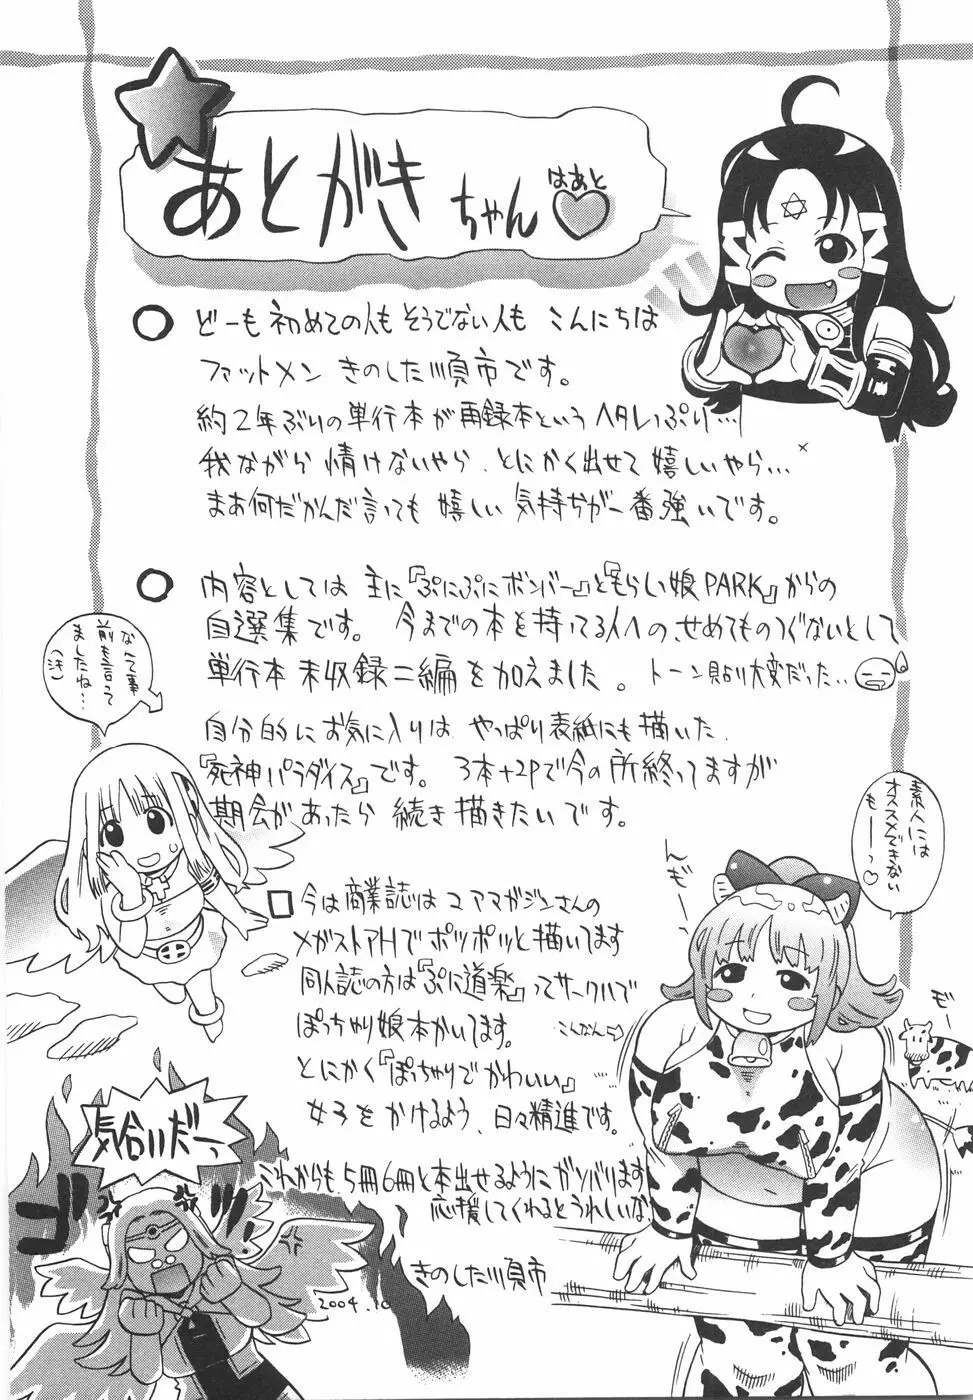 あとがきちゃん
はあと
どーも初めての人もそうでない人もこんにちは
ファットメン きのした順市です。
約2年ぶりの単行本が再録本というヘタレっぷり…
我ながら情けないやら、とにかく出せて嬉しいやら…
まあ何だかんだ言っても嬉しい気持ちが一番強いです。
内容としては主に『ぷにぷにボンバー』と『もらい娘PARK』からの
自選集です。今までの本を持ってる人へのせめてものつぐないとして
単行本未収録二編を加えました。トーン貼り大変だった…
自分的にお気に入りは、やっぱり表紙にも描いた
『死神パラダイス』です。3本+2Pで今の所終ってますが
期会があったら続き描きたいです。
なんて事
前も言って
ましたね…
(汗)
素人には
オススメできない
もーーっ♡
んぎー
んぎー
今は商業誌はコアマガジンさんの
メガストアHでポツポツと描いてます
同人誌の方は『ぷに道楽』ってサークルで
ぽっちゃり娘本かいてます。
こんなん
とにかく『ぽっちゃりでかわいい』
女子をかけるよう、日々精進です。
モー
これからも5冊6冊と本出せるようにガンバリます
応援してくれるとうれしいな
きのした順市
2004.10
気合いだーっ
ゴゴ